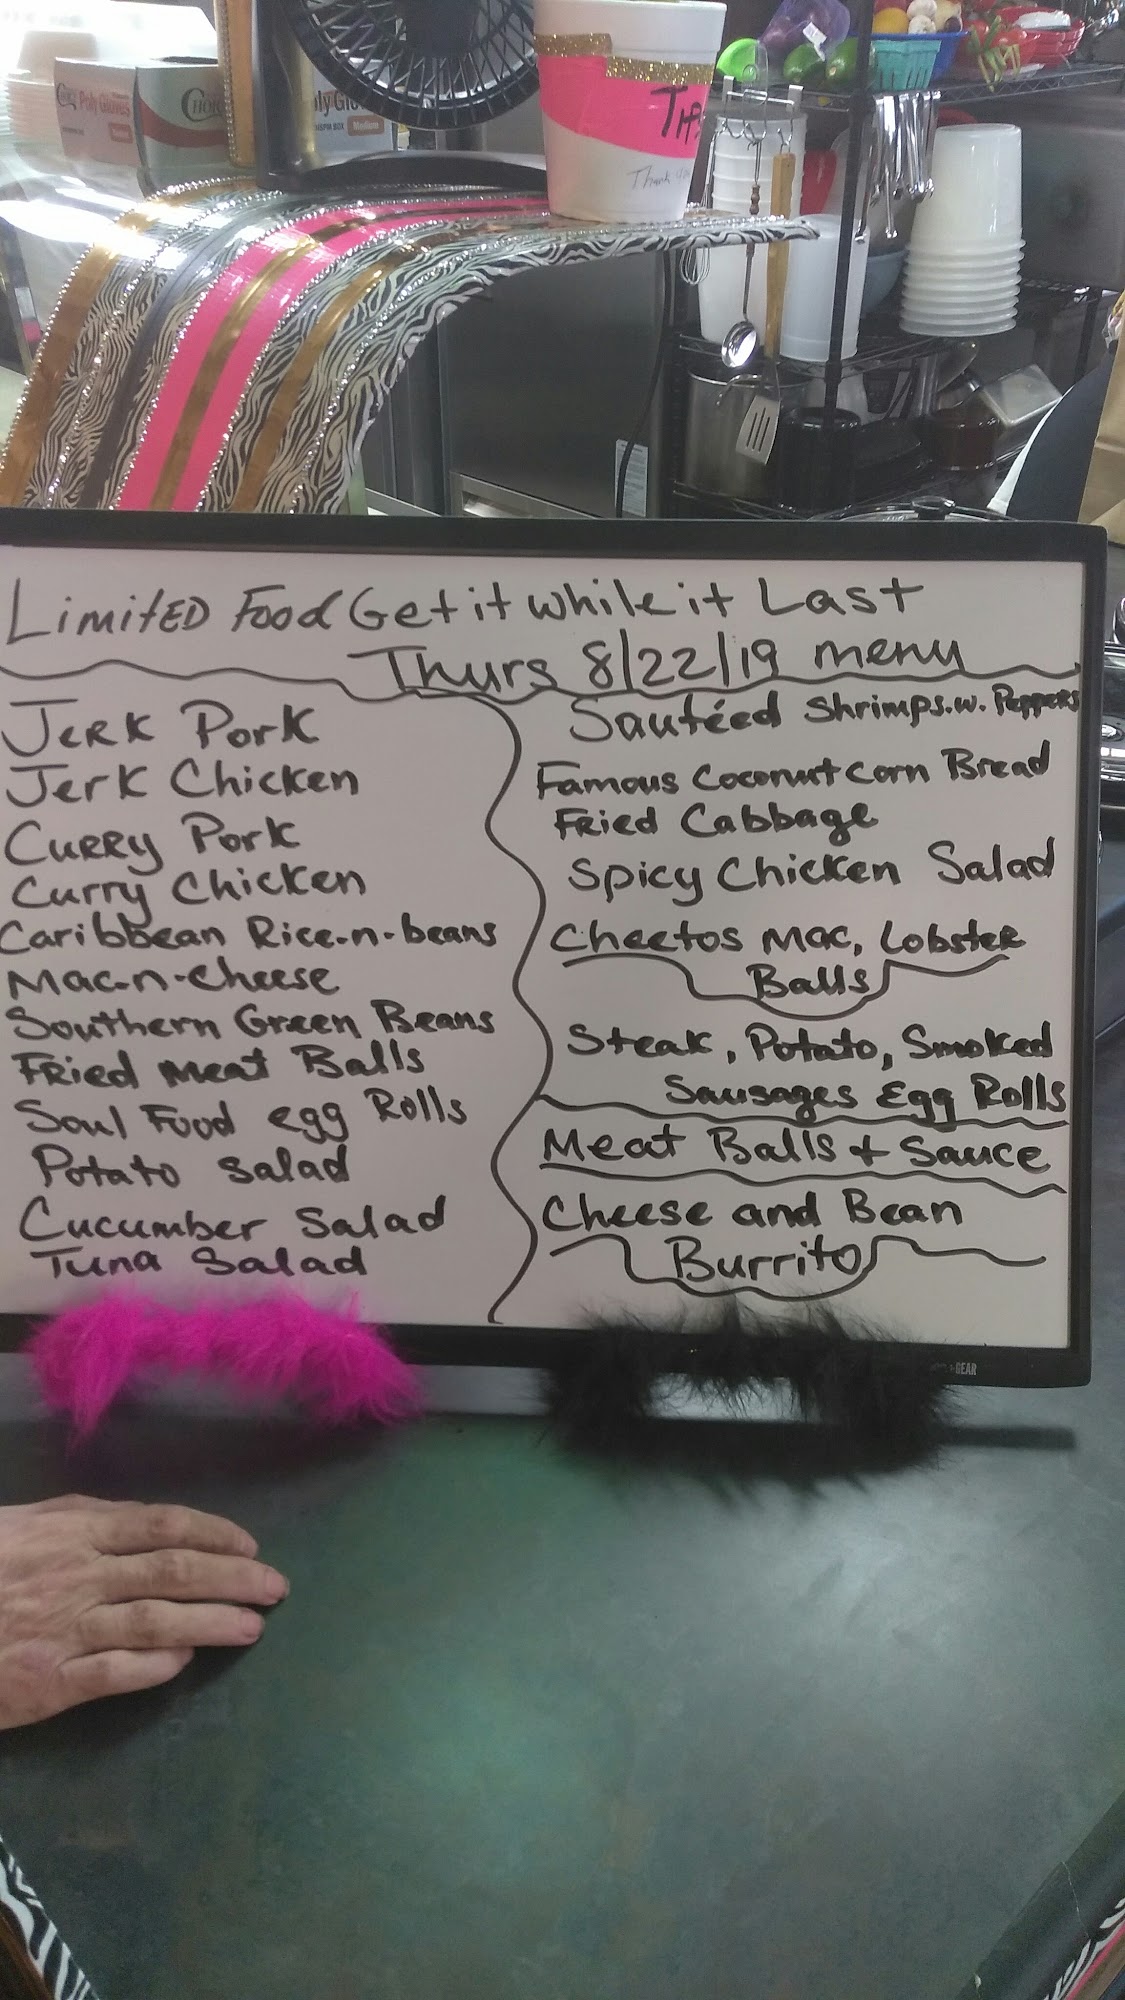 Poly Gloves
Choice
Poly Glo
Medium
TIPS
Thank you
LimitED Food Get it while it Last
Thurs 8/22/19 menu
Jerk Pork
Jerk Chicken
Curry Pork
Curry Chicken
Caribbean Rice-n-beans
Mac-n-Cheese
Southern Green Beans
Fried meat Balls
Soul Food egg Rolls
Potato Salad
Cucumber Salad
Tuna Salad
Sautéed Shrimps.w. Peppers
Famous Coconut Corn Bread
Fried Cabbage
Spicy Chicken Salad
Cheetos Mac, Lobster
Balls
Steak, Potato, Smoked
Sausages Egg Rolls
Meat Balls + Sauce
Cheese and Bean
Burrito
GEAR